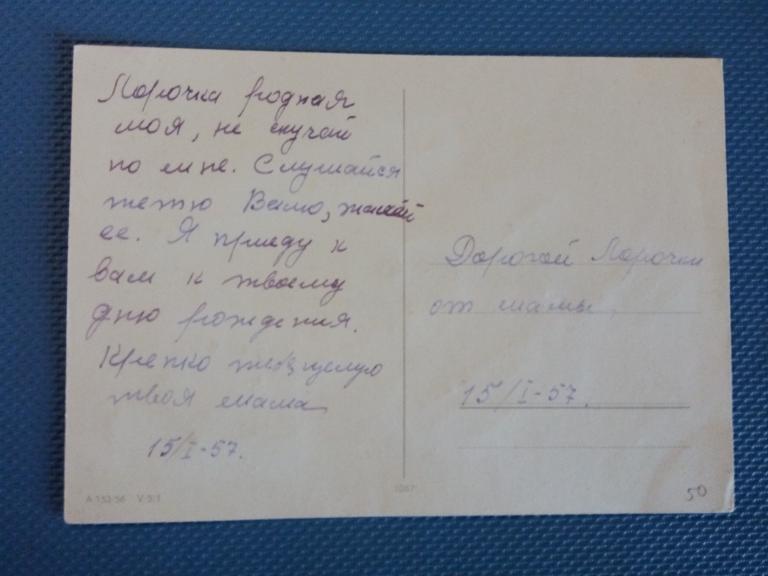 Лорочка родная
моя, не скучай
по мне. Слушайся
тетю Валю, жалей
ее. Я приеду к
вам к твоему
дню рождения.
Крепко тебя целую
твоя мама
15/I-57.
Дорогой Лорочке
от мамы.
15/I-57.
A 153-56 V-5-1
50